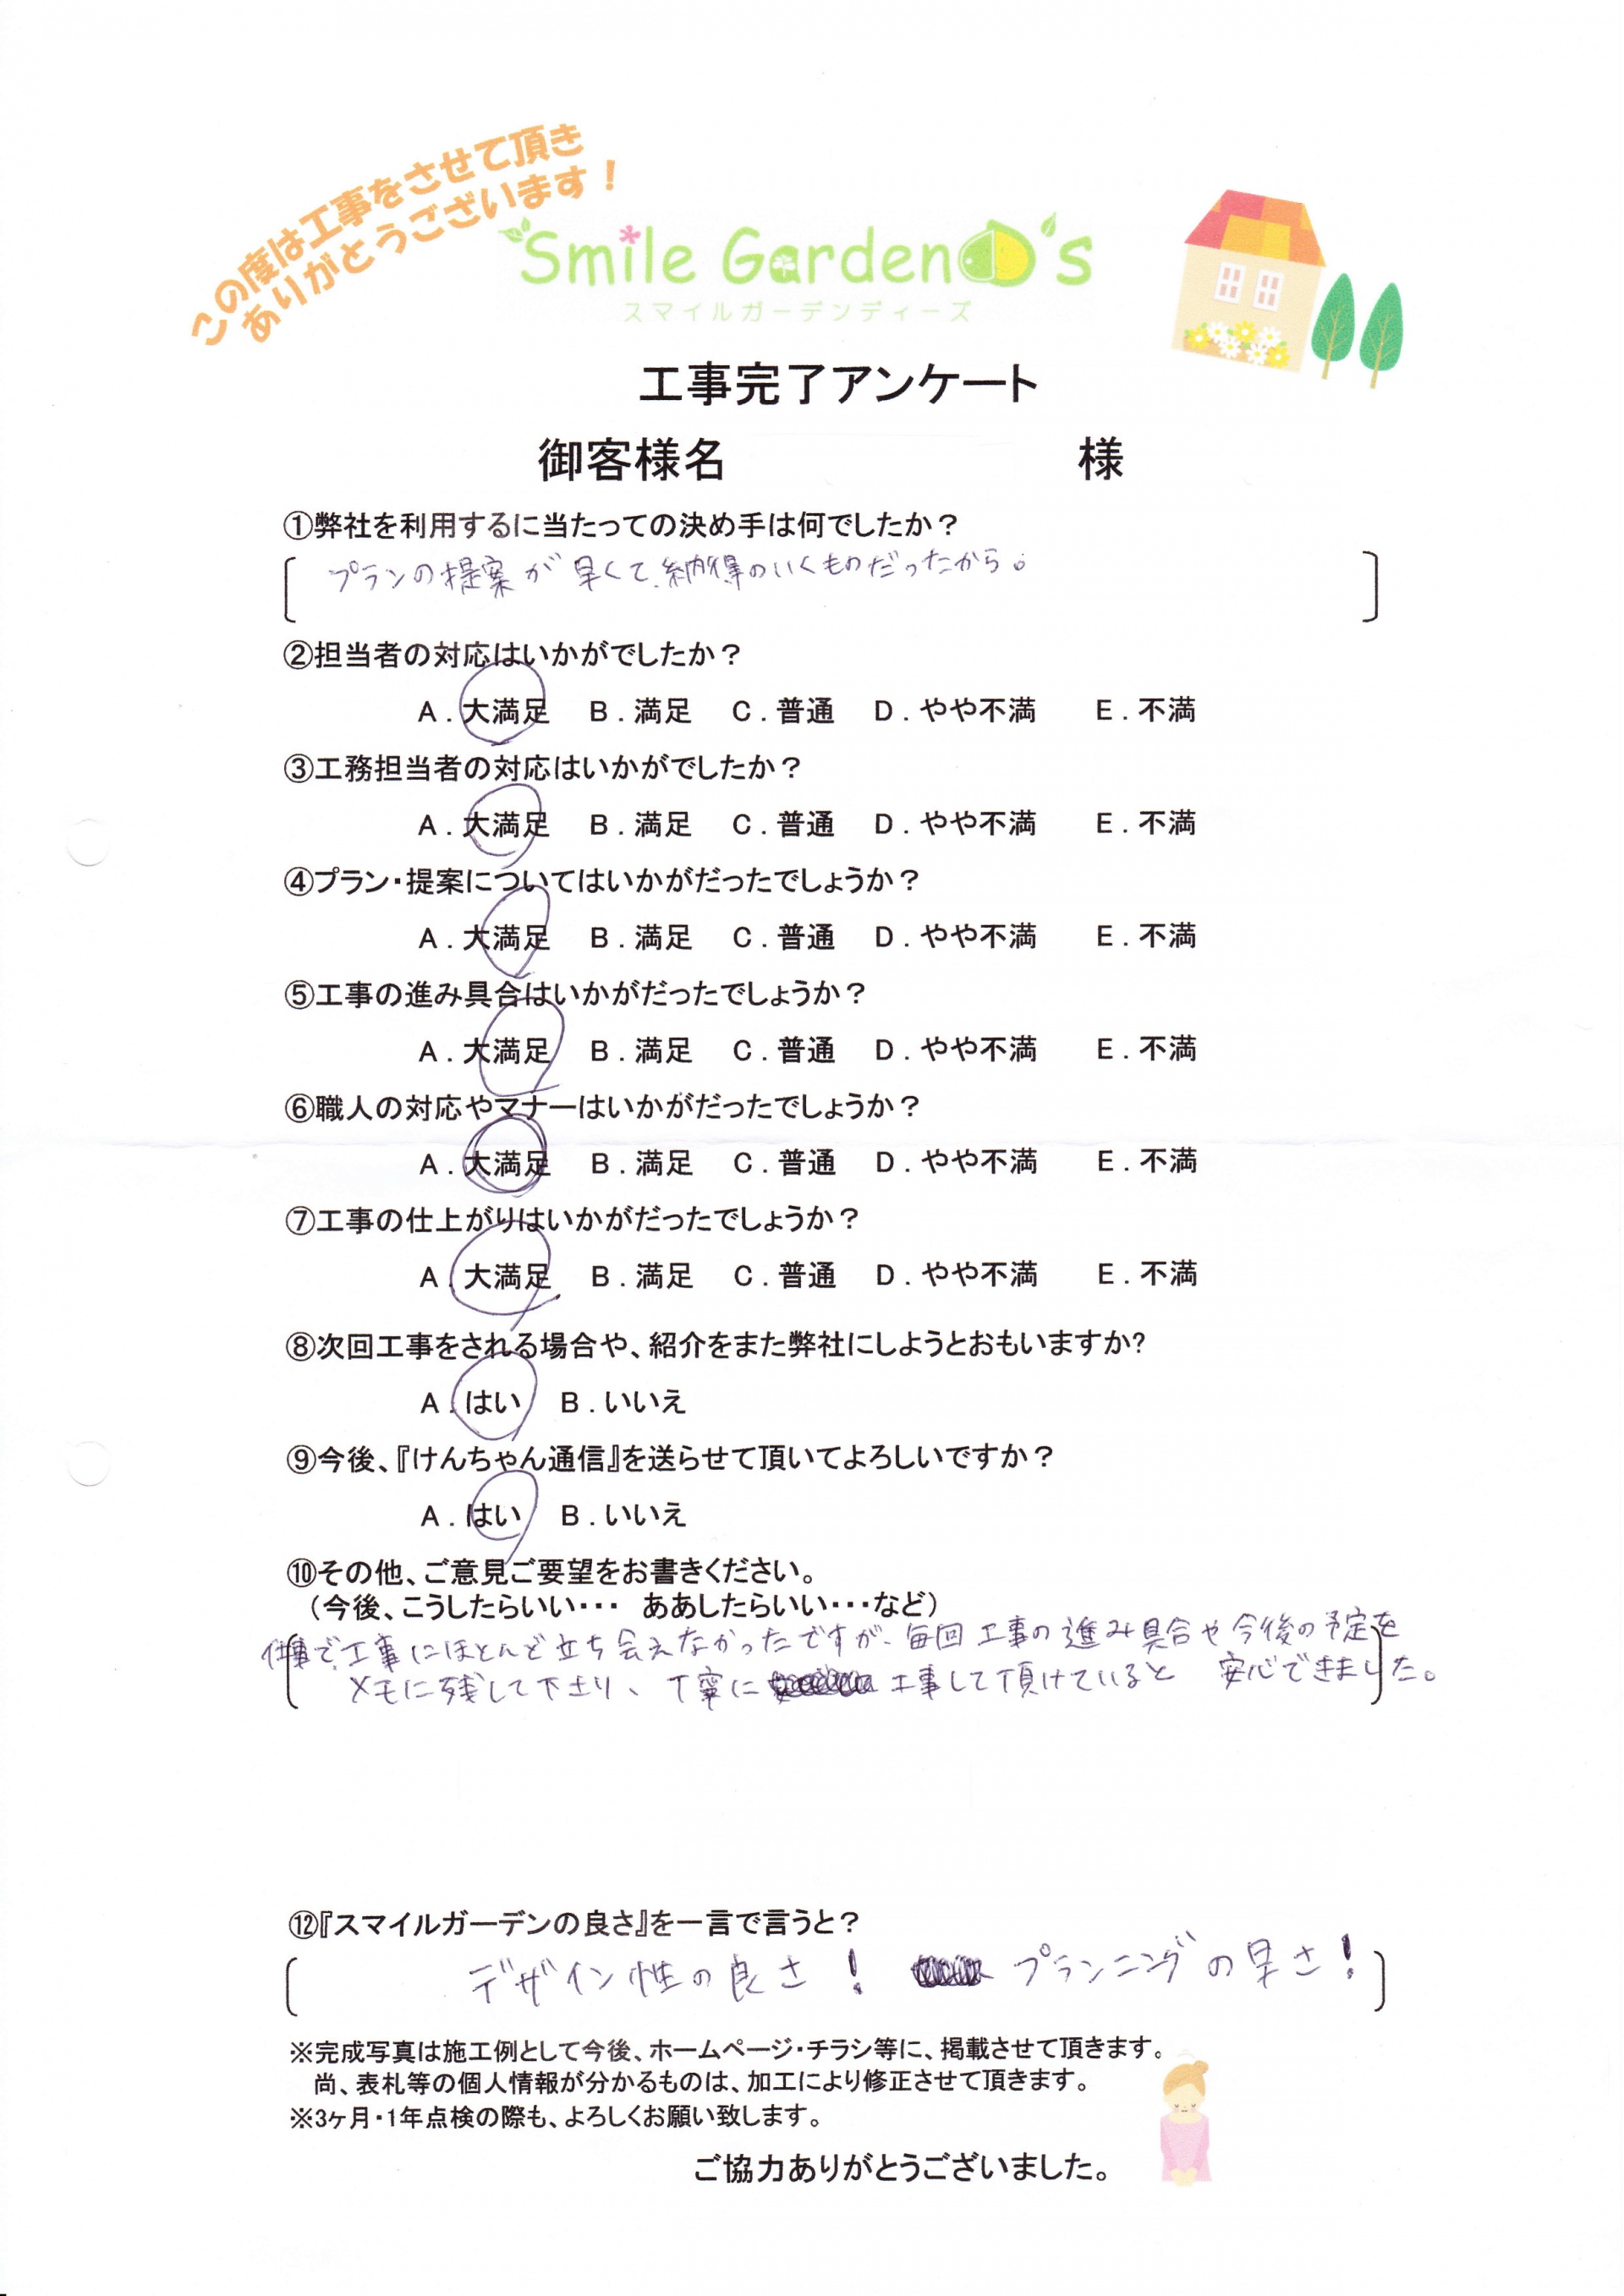 この度は工事をさせて頂き
ありがとうございます！
Smile GardenD's
スマイルガーデンディーズ
工事完了アンケート
御客様名 様
①弊社を利用するに当たっての決め手は何でしたか？
プランの提案が早くて、納得のいくものだったから。
②担当者の対応はいかがでしたか？
A．大満足 B．満足 C．普通 D．やや不満 E．不満
③工務担当者の対応はいかがでしたか？
A．大満足 B．満足 C．普通 D．やや不満 E．不満
④プラン・提案についてはいかがだったでしょうか？
A．大満足 B．満足 C．普通 D．やや不満 E．不満
⑤工事の進み具合はいかがだったでしょうか？
A．大満足 B．満足 C．普通 D．やや不満 E．不満
⑥職人の対応やマナーはいかがだったでしょうか？
A．大満足 B．満足 C．普通 D．やや不満 E．不満
⑦工事の仕上がりはいかがだったでしょうか？
A．大満足 B．満足 C．普通 D．やや不満 E．不満
⑧次回工事をされる場合や、紹介をまた弊社にしようとおもいますか?
A．はい B．いいえ
⑨今後、『けんちゃん通信』を送らせて頂いてよろしいですか？
A．はい B．いいえ
⑩その他、ご意見ご要望をお書きください。
（今後、こうしたらいい・・・ ああしたらいい・・・など）
仕事で、工事にほとんど立ち会えなかったですが、毎回工事の進み具合や今後の予定を
メモに残して下さり、丁寧に工事して頂けていると安心できました。
⑫『スマイルガーデンの良さ』を一言で言うと？
デザイン性の良さ！ プランニングの早さ！
※完成写真は施工例として今後、ホームページ・チラシ等に、掲載させて頂きます。
尚、表札等の個人情報が分かるものは、加工により修正させて頂きます。
※3ヶ月・1年点検の際も、よろしくお願い致します。
ご協力ありがとうございました。